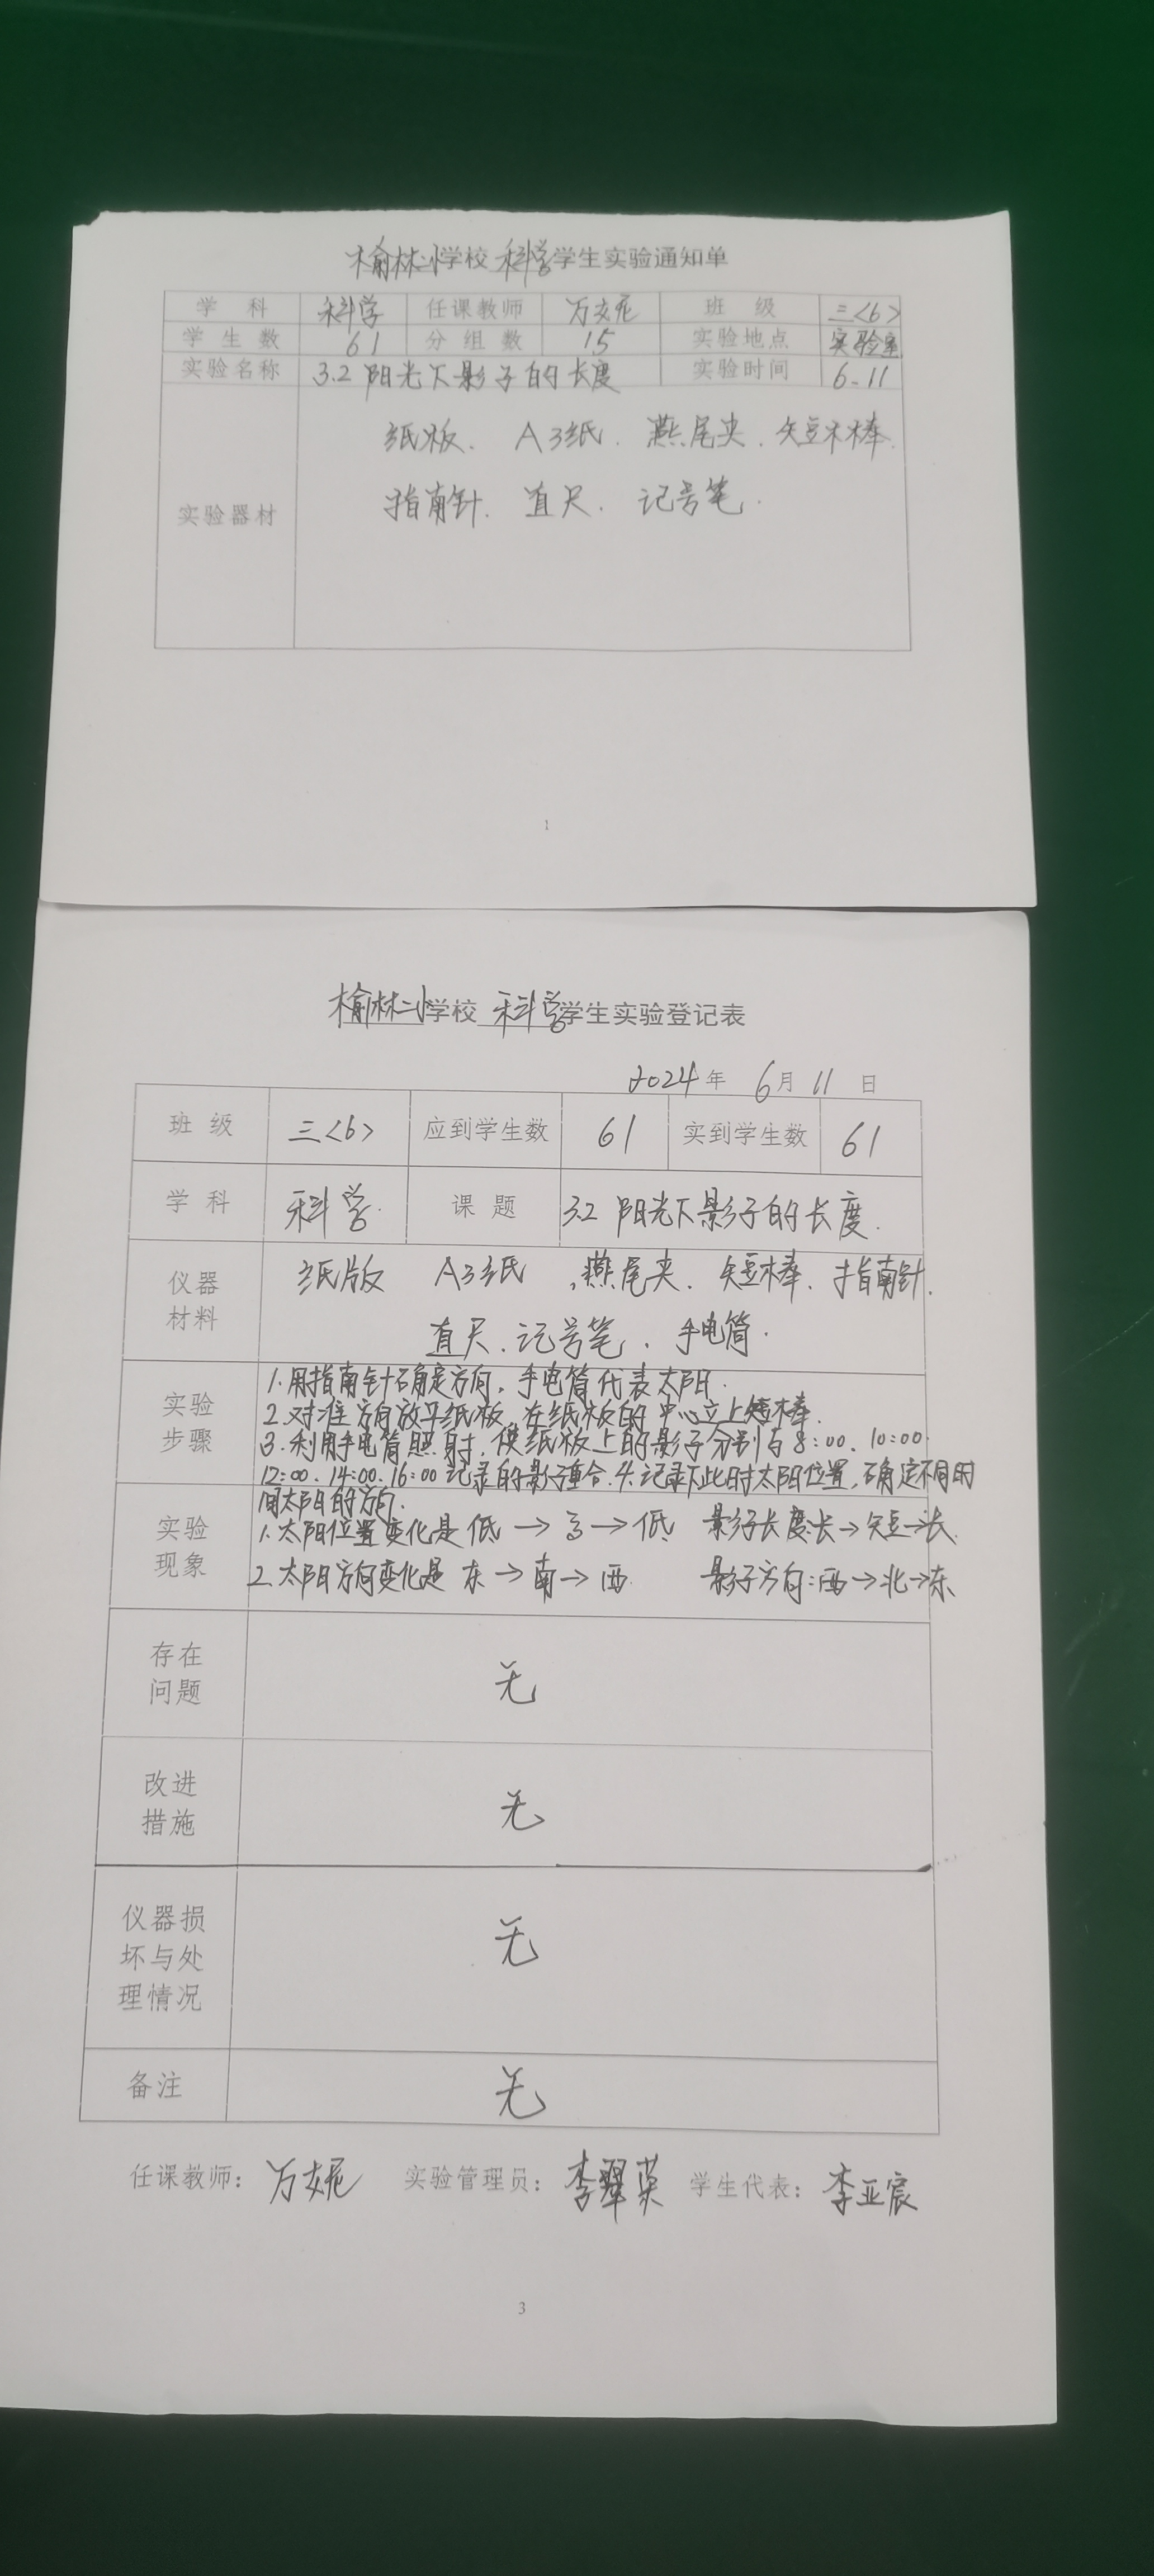 榆林二小学校 科学学生实验通知单
学 科 科学 任课教师 万友尼 班 级 三<6>
学 生 数 61 分 组 数 15 实验地点 实验室
实验名称 3.2 阳光下影子的长度 实验时间 6-11
纸板. A3纸. 燕尾夹. 短木棒.
实验器材 指南针. 直尺. 记号笔.
1
榆林二小学校 科学学生实验登记表
2024 年 6 月 11 日
班 级 三<6> 应到学生数 61 实到学生数 61
学 科 科学. 课 题 3.2 阳光下影子的长度.
仪器材料 纸版 A3纸 .燕尾夹. 短棒. 指南针.
直尺.记号笔.手电筒.
实验步骤 1.用指南针确定方向,手电筒代表太阳.
2.对准方向放平纸板,在纸板的中心立上短棒.
3.利用手电筒照射,使纸板上的影子分别与8:00、10:00.
12:00.14:00.16:00记录的影子重合.4.记录下此时太阳位置,确定不同时
间太阳的方向.
实验现象 1.太阳位置变化是低→高→低 影子长度:长→短→长.
2.太阳方向变化是 东→南→西. 影子方向:西→北→东
存在问题 无
改进措施 无
仪器损坏与处理情况 无
备注 无
任课教师: 实验管理员: 李翠英 学生代表: 李亚宸
3